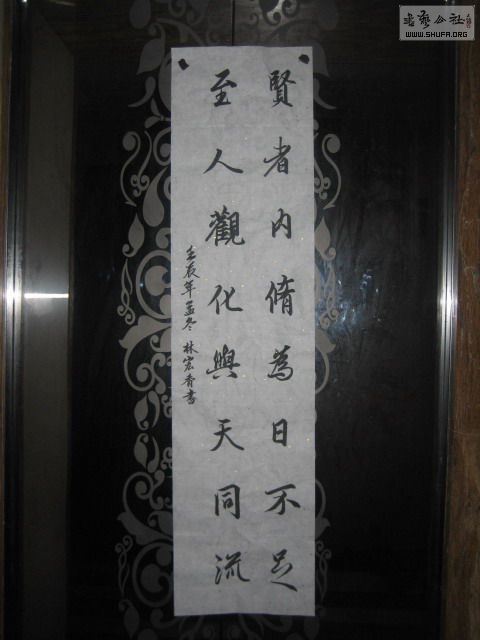 賢者內脩為日不足
至人觀化與天同流
壬辰年孟冬 林宏香書
書藝公社
WWW.SHUFA.ORG